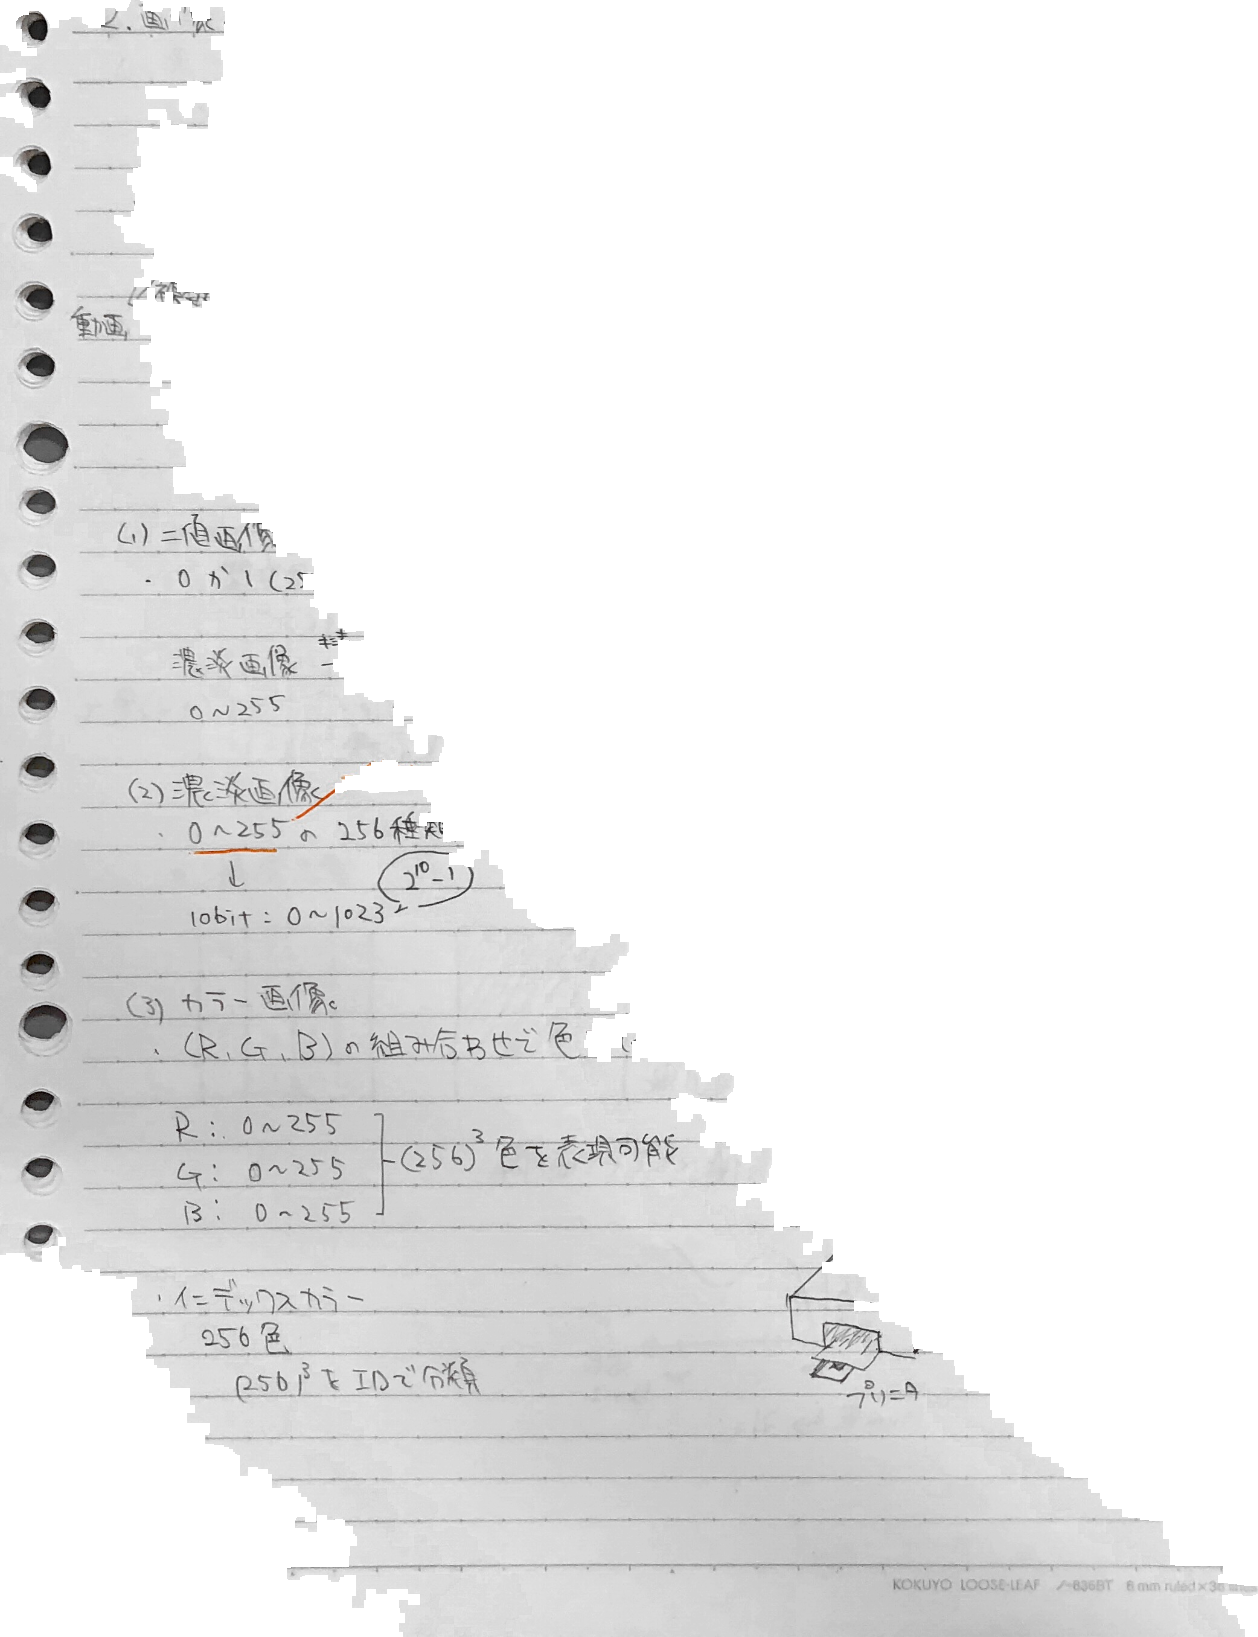 2.画
動画
(1) 二値画像
・ 0か1 (25
濃淡画像
0~255
(2) 濃淡画像
・ 0~255の 256種類
↓
2^10-1
10bit: 0~1023
(3) カラー画像
・ (R, G, B)の組み合わせで色
R: 0~255
G: 0~255
(256)^3色を表現可能
B: 0~255
・インデックスカラー
256色
(256)^3をIDで分類
プリンタ
KOKUYO LOOSE-LEAF ノ-836BT 6 mm ruled×